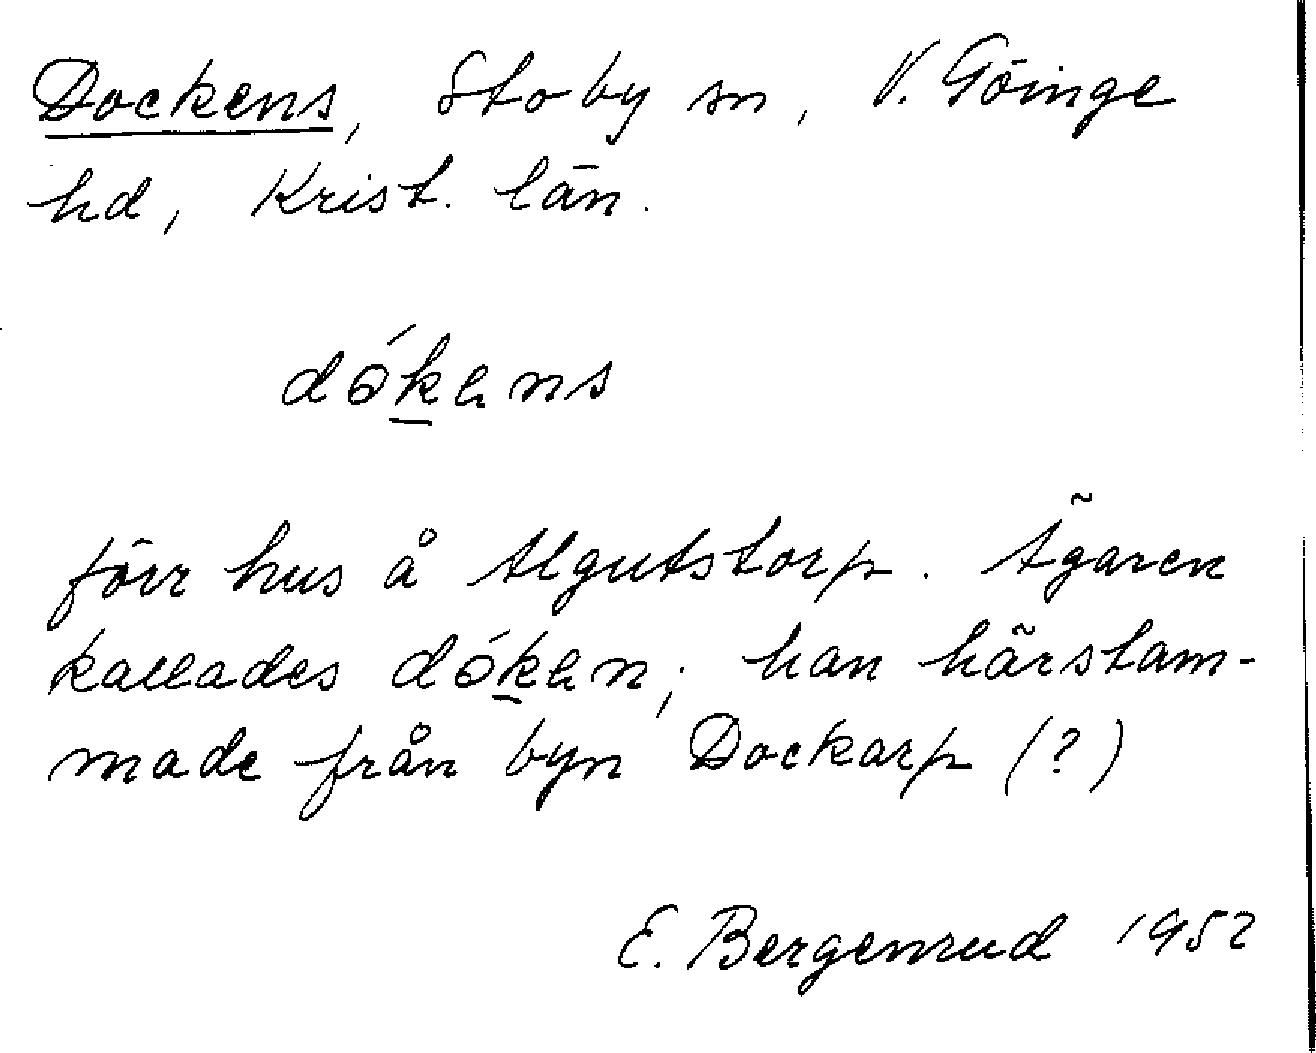 Dockens, Stoby sn, V. Göinge
hd, Krist. län.
dók̲ens
förr hus å Algutstorp. Ägaren
kallades dók̲en; han härstam-
made från byn Dockarp (?)
E. Bergenrud 1952